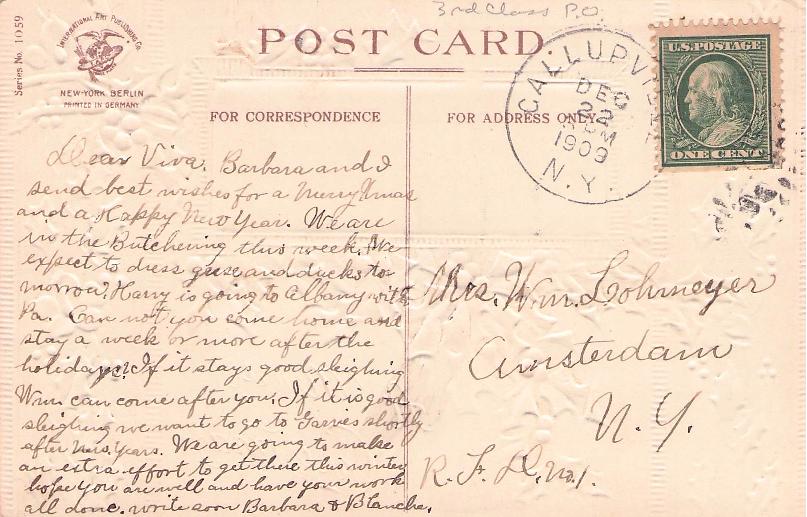 3rd Class P.O.
Series No. 1059
INTERNATIONAL ART PUBLISHING CO.
NEW-YORK BERLIN
PRINTED IN GERMANY
POST CARD.
U.S. POSTAGE
ONE CENT
GALLUPVI
DEC
22
M
1909
N.Y.
FOR CORRESPONDENCE
FOR ADDRESS ONLY
Dear Viva. Barbara and I
send best wishes for a Merry Xmas
and a Happy New Year. We are
in the Butchering this week. We
expect to dress geese and ducks to
morrow. Harry is going to Albany with
Pa. Can not you come home and
stay a week or more after the
holidays? If it stays good sleighing
Wm can come after you. If it is good
sleighing we want to go to Garvies shortly
after New Years. We are going to make
an extra effort to get there this winter
hope you are well and have your work
all done. write soon Barbara & Blanche.
Mrs. Wm. Lohmeyer
Amsterdam
N.Y.
R.F.D. No. 1.